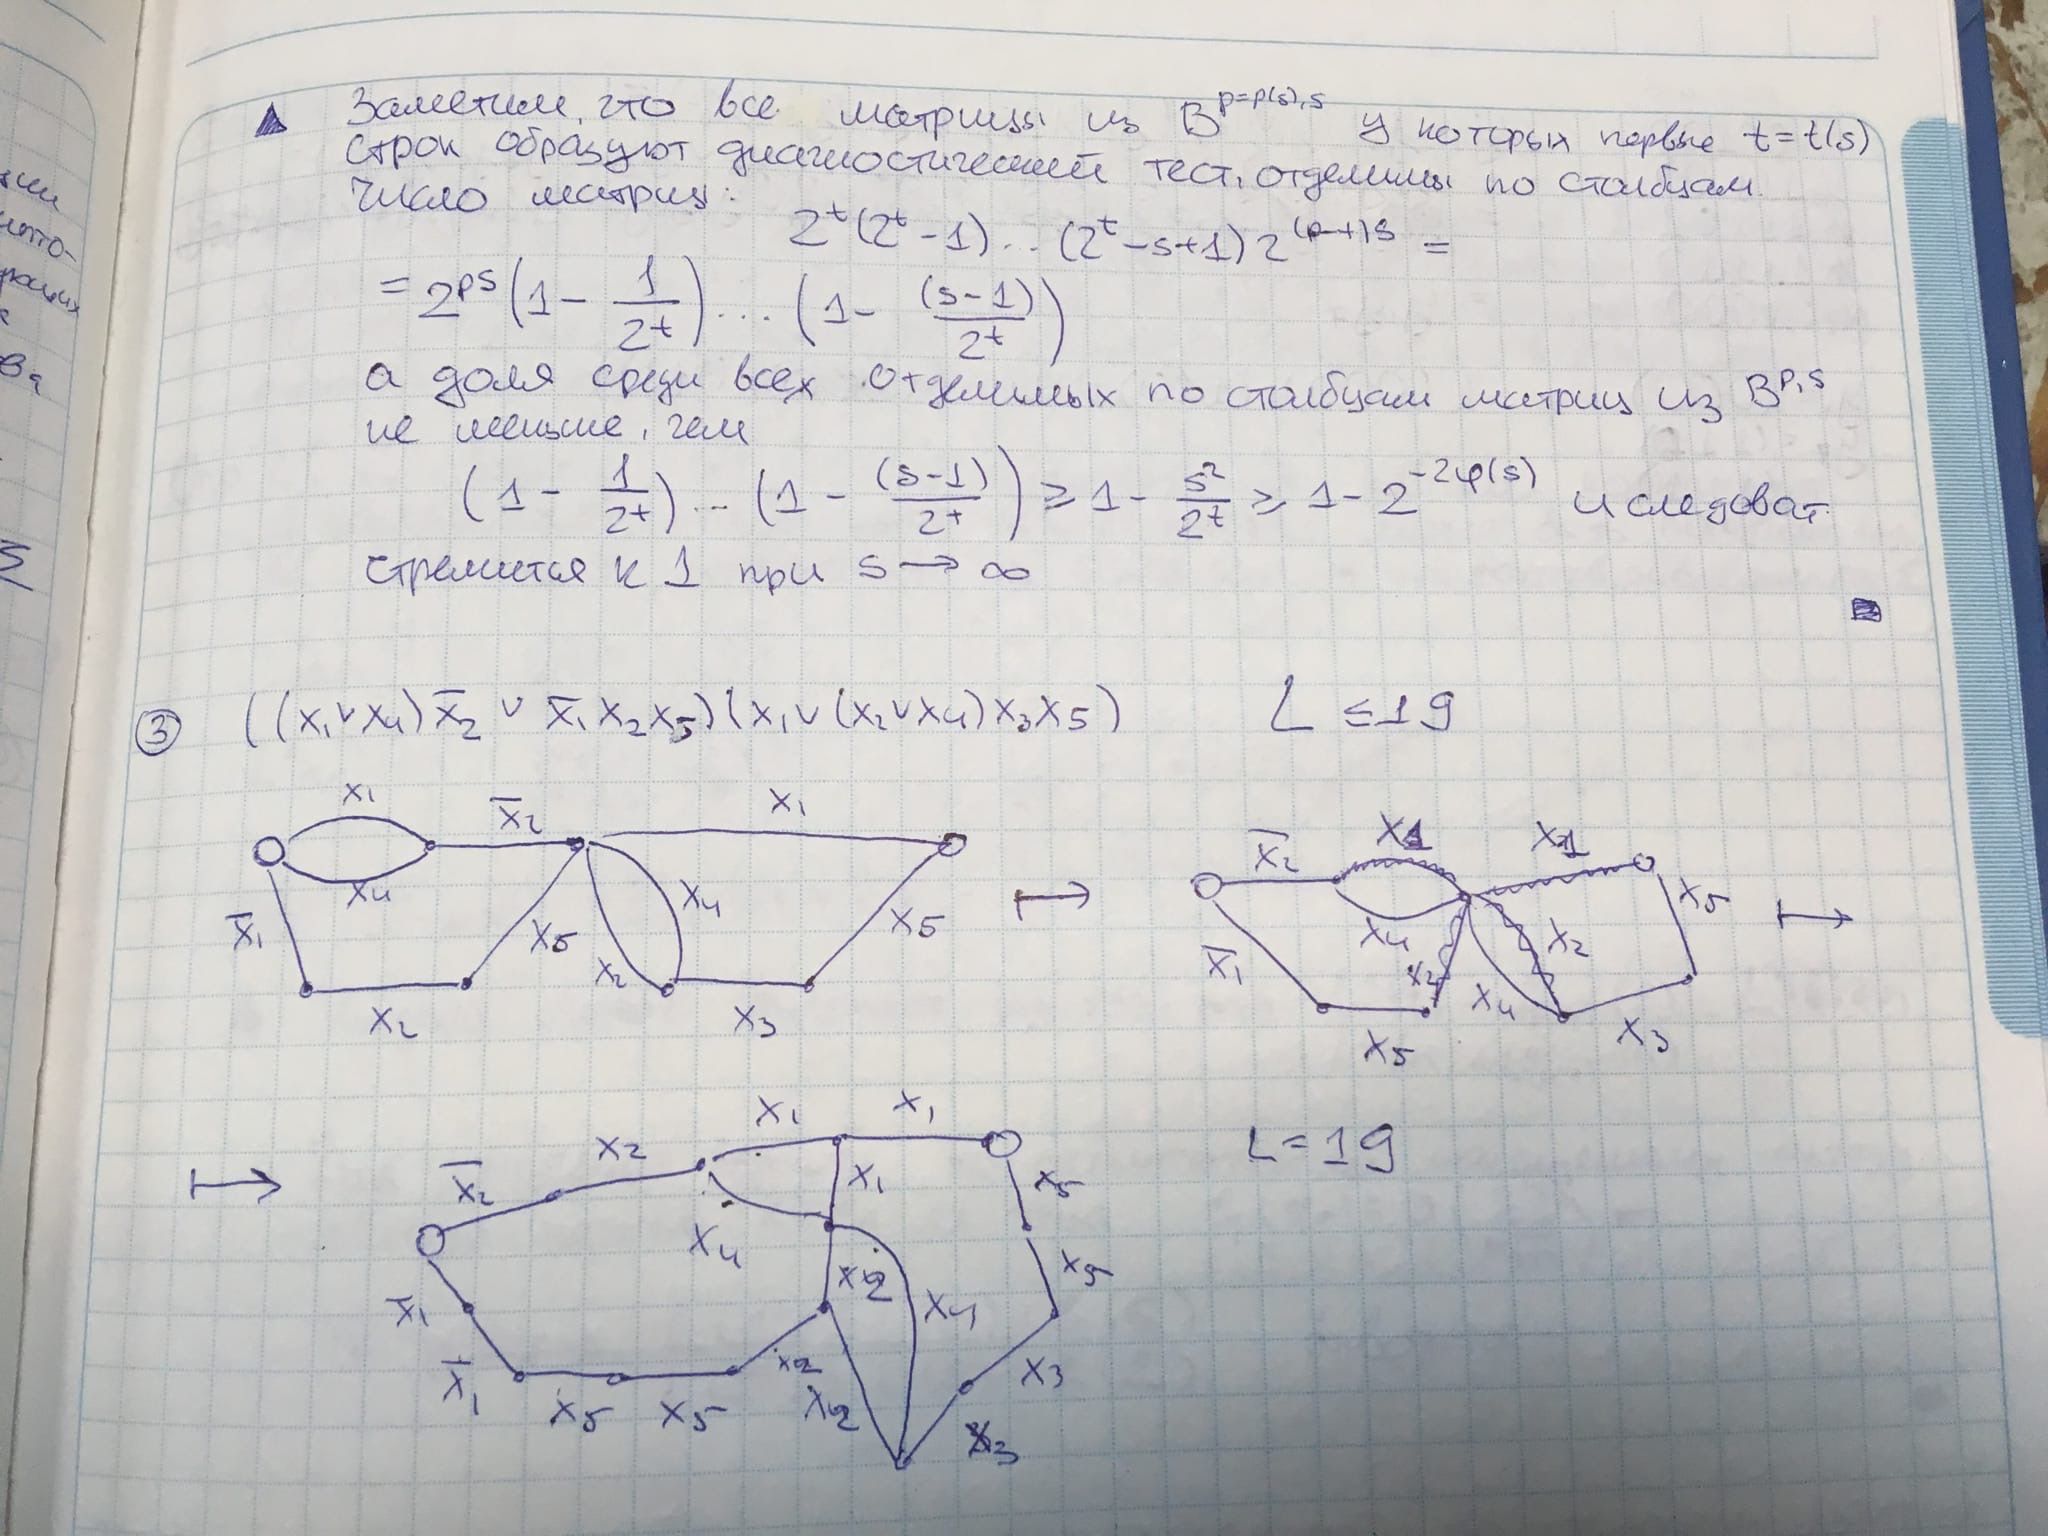 Заметим, что все матрицы из B^{p=p(s),s} у которых первые t=t(s)
строк образуют диагностический тест, отделимы по столбцам.
Число матриц:
2^t(2^t-1)...(2^t-s+1)2^{(p-t)s} =
= 2^{ps}(1 - 1/2^t)...(1 - (s-1)/2^t)
а доля среди всех отделимых по столбцам матриц из B^{p,s}
не меньше, чем
(1 - 1/2^t)...(1 - (s-1)/2^t) ≥ 1 - s²/2^t ≥ 1 - 2^{-2φ(s)} и следоват
стремится к 1 при s → ∞
③ ((x₁ ∨ x₄) x̄₂ ∨ x̄₁ x₂ x₅)(x₁ ∨ (x₂ ∨ x₄) x₃ x₅) L ≤ 19
x₁ x̄₂ x₁
x₄ x₄
x̄₁ x₅ x₂ x₅
x₂ x₃
↦
x̄₂ x₁ x₁
x₅
x̄₁ x₄ x₂ x₂
x₄
x₅ x₃
↦
x₁ x₁
x̄₂ x₂ x₁ x₅
L = 19
x₄
x̄₁ x₂ x₄ x₅
x̄₁ x₅ x₅ x₂ x₂ x₃
x₃